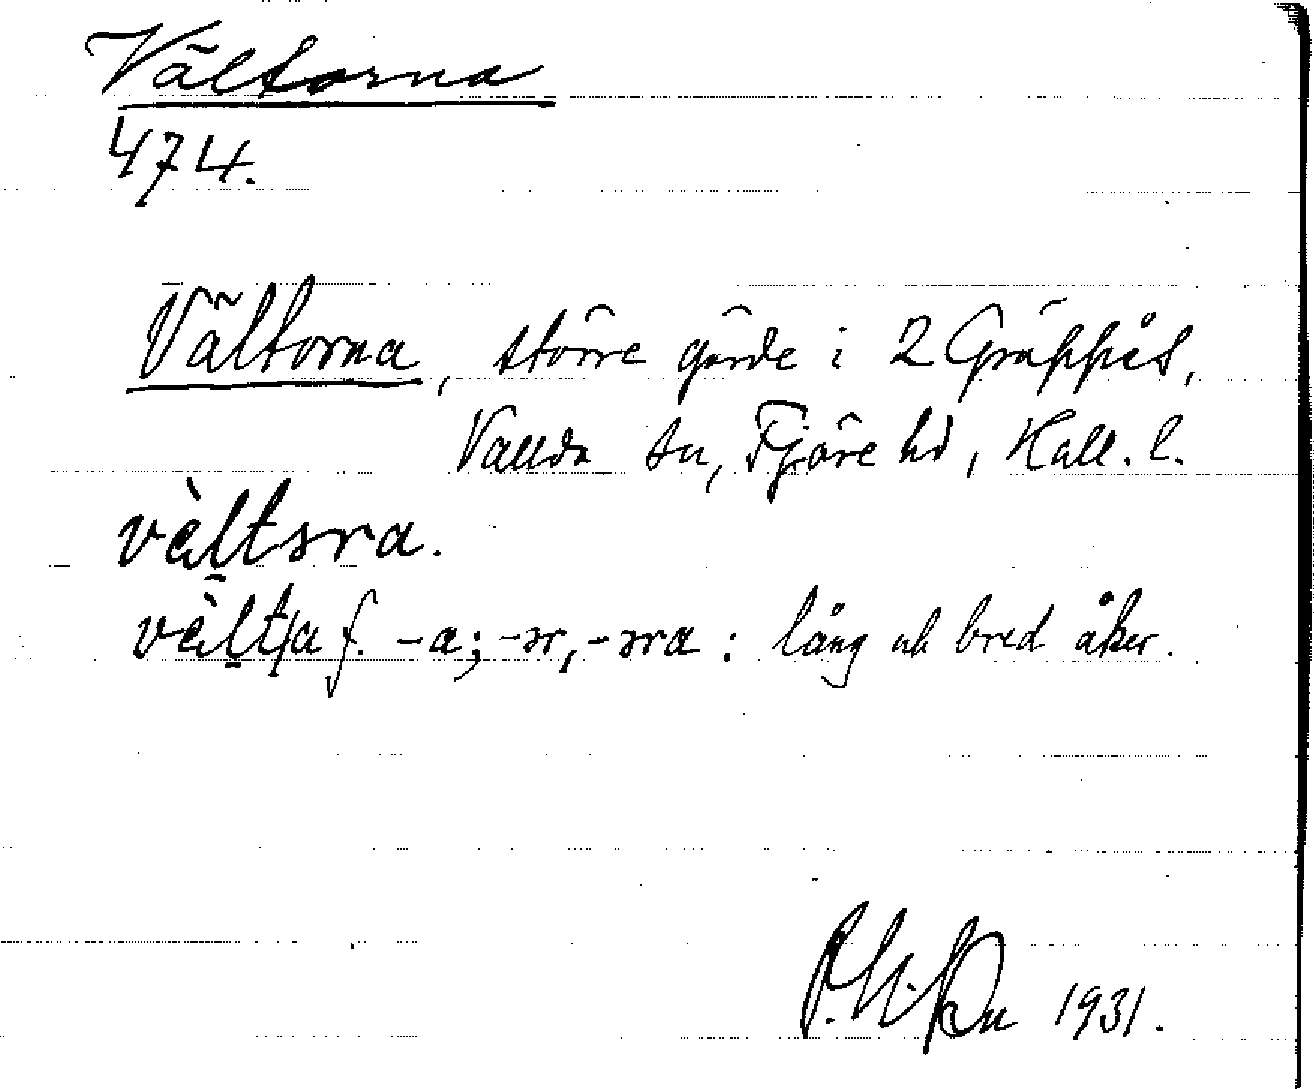 Vältorna
474.
Vältorna, större gärde i 2 Gräppås,
Vallda sn, Fjäre hd, Hall. l.
vèltəra.
vèlt/a f. -a; -ər, -əra : lång och bred åker.
1931.